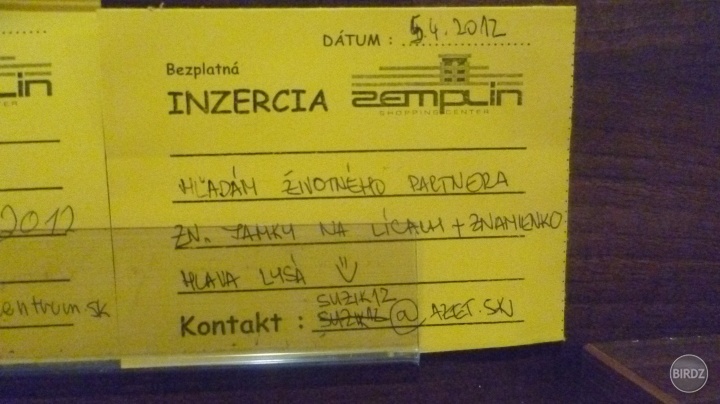 DÁTUM : 5.4.2012
Bezplatná
INZERCIA ZEMPLIN
SHOPPING CENTER
HĽADÁM ŽIVOTNÉHO PARTNERA
ZN. JAMKY NA LÍCACH + ZNAMIENKO
HLAVA LYSÁ
SUZIK12
Kontakt : SUZIK12 @ AZET.SK
LIN
TER
2012
entrum.sk
BIRDZ